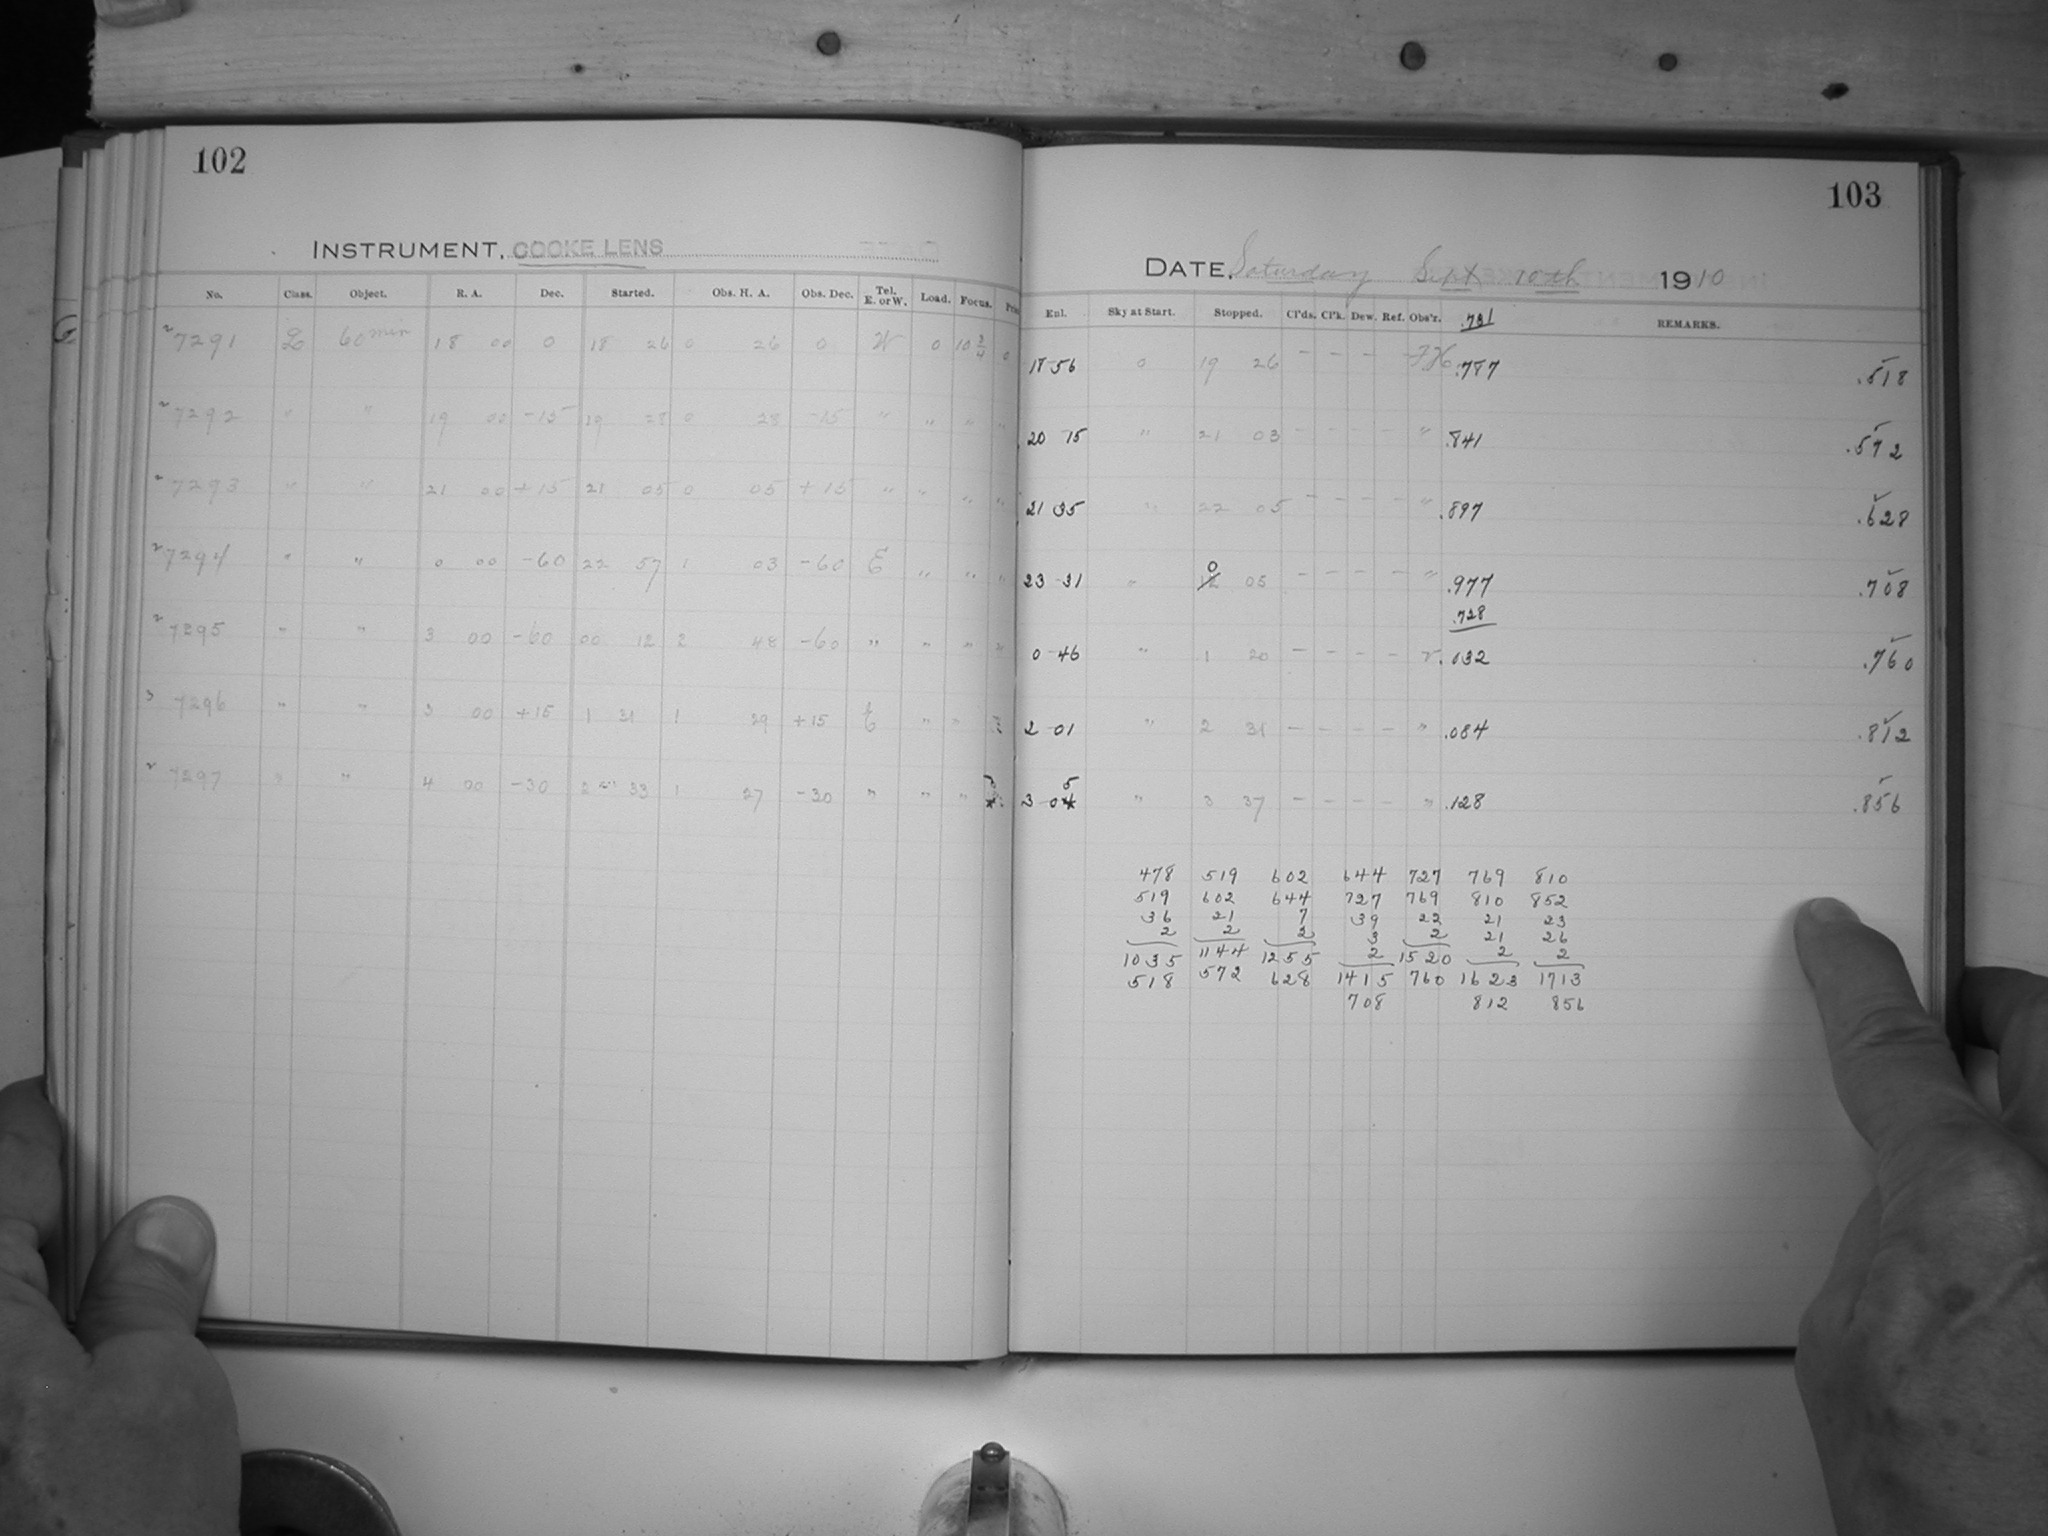 102
INSTRUMENT, COOKE LENS
No. Class. Object. R. A. Dec. Started. Obs. H. A. Obs. Dec. Tel. E. or W. Load. Focus.
7291 L 60 min 18 00 0 18 26 0 26 0 W 0 10 3/4 0
7292 " " 19 00 -15 19 28 0 28 -15 " " " "
7293 " " 21 00 +15 21 05 0 05 +15 " " " "
7294 " " 0 00 -60 22 57 1 03 -60 E " " "
7295 " " 3 00 -60 00 12 2 48 -60 " " " "
7296 " " 3 00 +15 1 31 1 29 +15 E " "
7297 " " 4 00 -30 2 33 1 27 -30 " " "
103
DATE, Saturday Sept 10th 1910
Enl. Sky at Start. Stopped. Cl'ds. Cl'k. Dew. Ref. Obs'r. .731 REMARKS.
18 56 0 19 26 - - - - .787 .518
20 15 " 21 03 - - - - " .841 .572
21 35 " 22 05 - - - - " .897 .628
23 31 " 0 05 - - - - " .977 .708
.728
0 46 " 1 20 - - - - .032 .760
2 01 " 2 31 - - - - " .084 .812
3 05 " 3 37 - - - - " .128 .856
478 519 602 644 727 769 810
519 602 644 727 769 810 852
36 21 7 39 22 21 23
2 2 2 3 2 21 26
1035 1144 1255 2 1520 2 2
518 572 628 1415 760 1623 1713
708 812 856